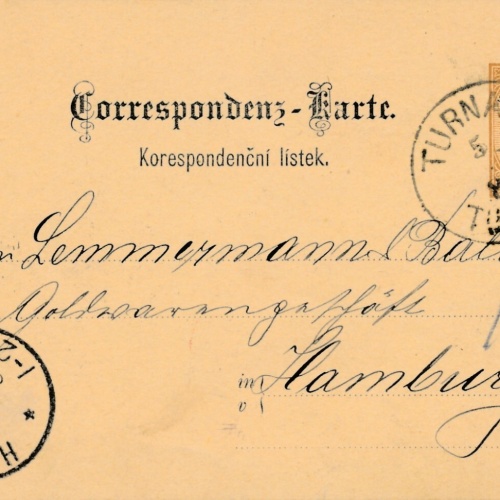 Correspondenz-Karte.
Korespondenční lístek.
TURNA
5
TU
Lemmermann & Bal
Goldwarengeschäft
in Hamburg
v
1-2
*
H